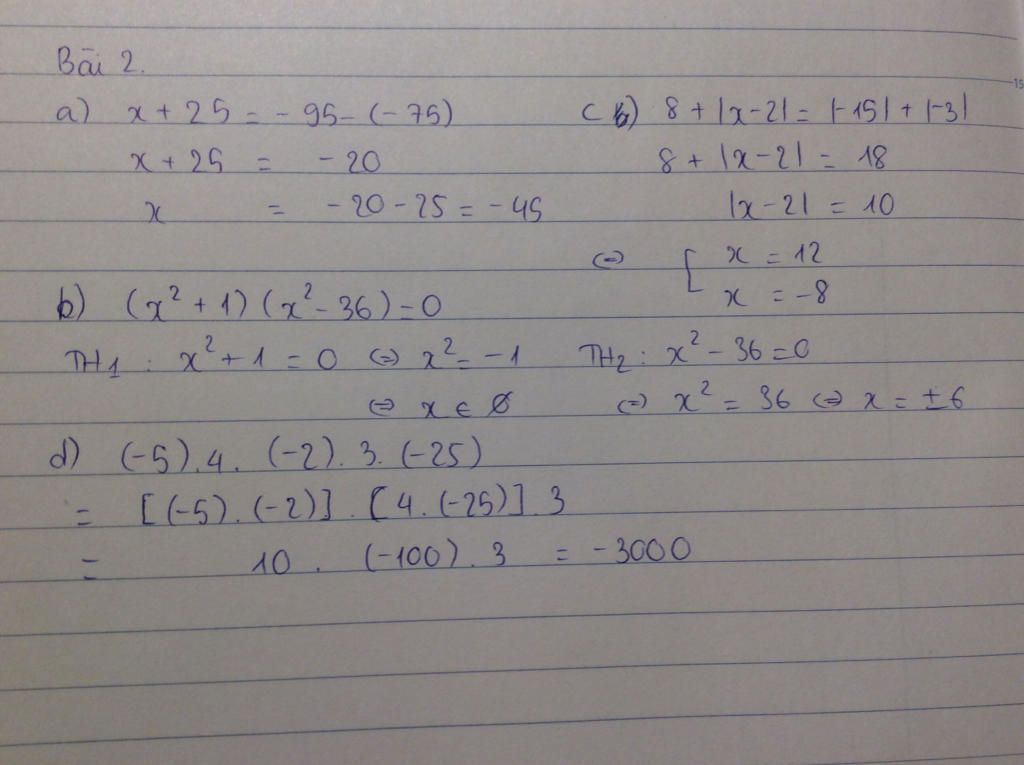 Bài 2.
a) x + 25 = - 95 - (- 75)
x + 25 = - 20
x = - 20 - 25 = - 45
c) 8 + |x - 2| = |-15| + |-3|
8 + |x - 2| = 18
|x - 2| = 10
⇔ [ x = 12
x = -8
b) (x² + 1) (x² - 36) = 0
TH1 : x² + 1 = 0 ⇔ x² = -1
⇔ x ∈ ∅
TH2 : x² - 36 = 0
⇔ x² = 36 ⇔ x = ± 6
d) (-5) . 4 . (-2) . 3 . (-25)
= [(-5) . (-2)] . [4 . (-25)] . 3
= 10 . (-100) . 3 = -3000